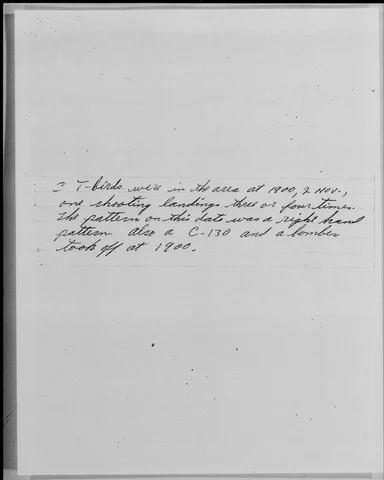 2 T-birds were in the area at 1900, 2 Nov.,
one shooting landings three or four times.
The pattern on this date was a right hand
pattern. Also a C-130 and a bomber
took off at 1900.